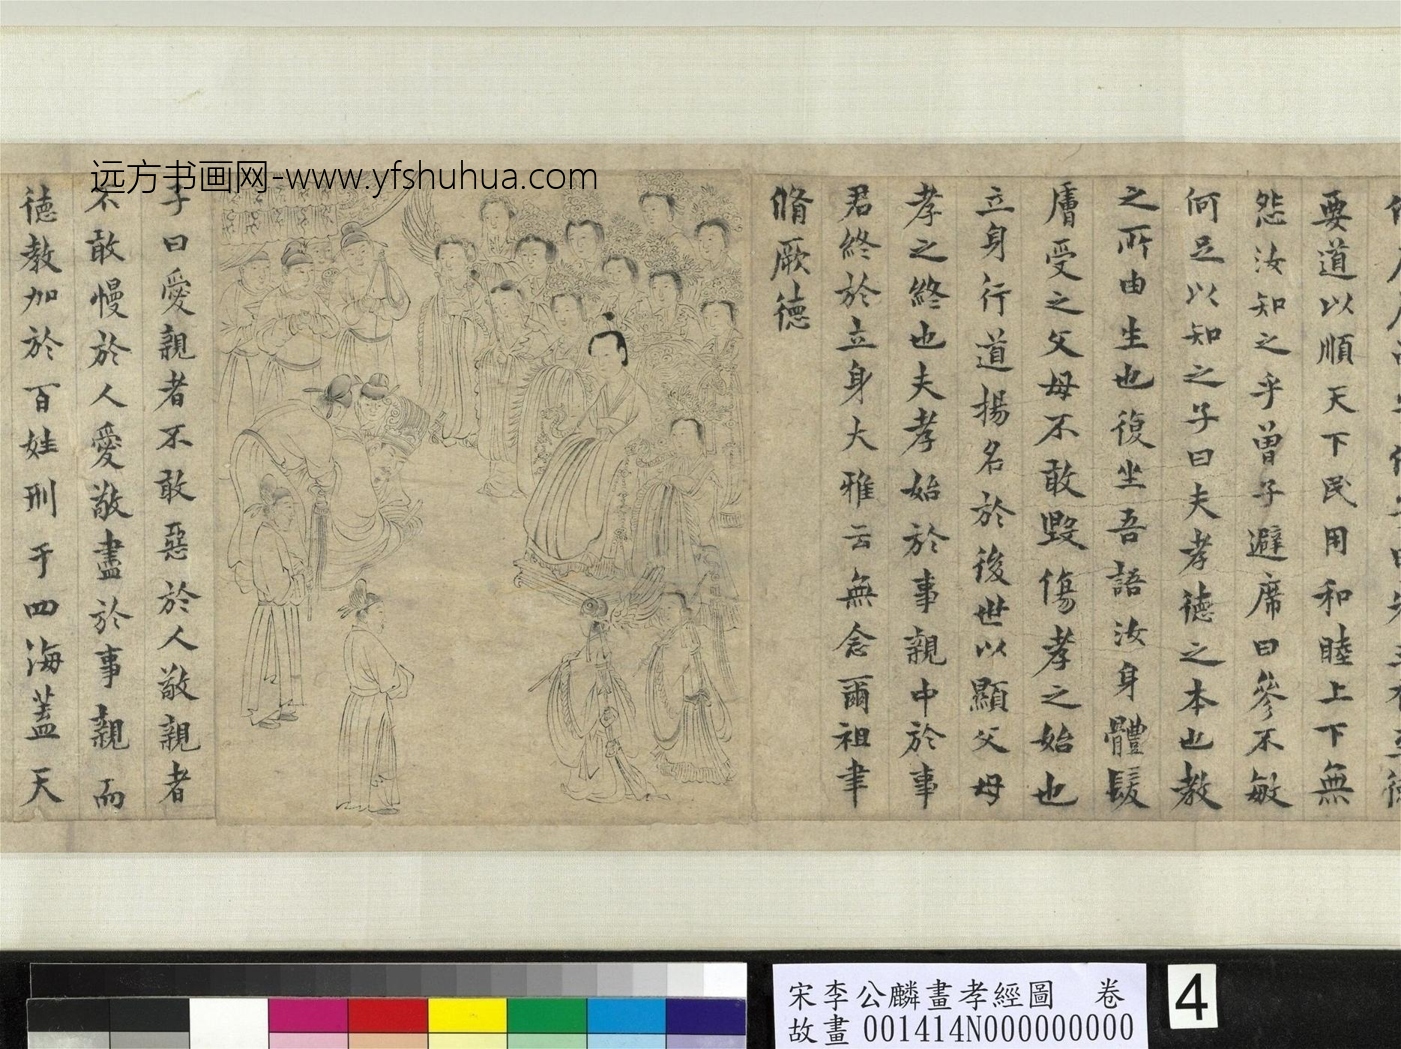 要道以順天下民用和睦上下無
怨汝知之乎曾子避席曰參不敏
何足以知之子曰夫孝德之本也教
之所由生也復坐吾語汝身體髮
膚受之父母不敢毀傷孝之始也
立身行道揚名於後世以顯父母
孝之終也夫孝始於事親中於事
君終於立身大雅云無念爾祖聿
脩厥德
子曰愛親者不敢惡於人敬親者
不敢慢於人愛敬盡於事親而
德教加於百姓刑于四海蓋天
远方书画网-www.yfshuhua.com
宋李公麟畫孝經圖 卷
故畫 001414N000000000
4